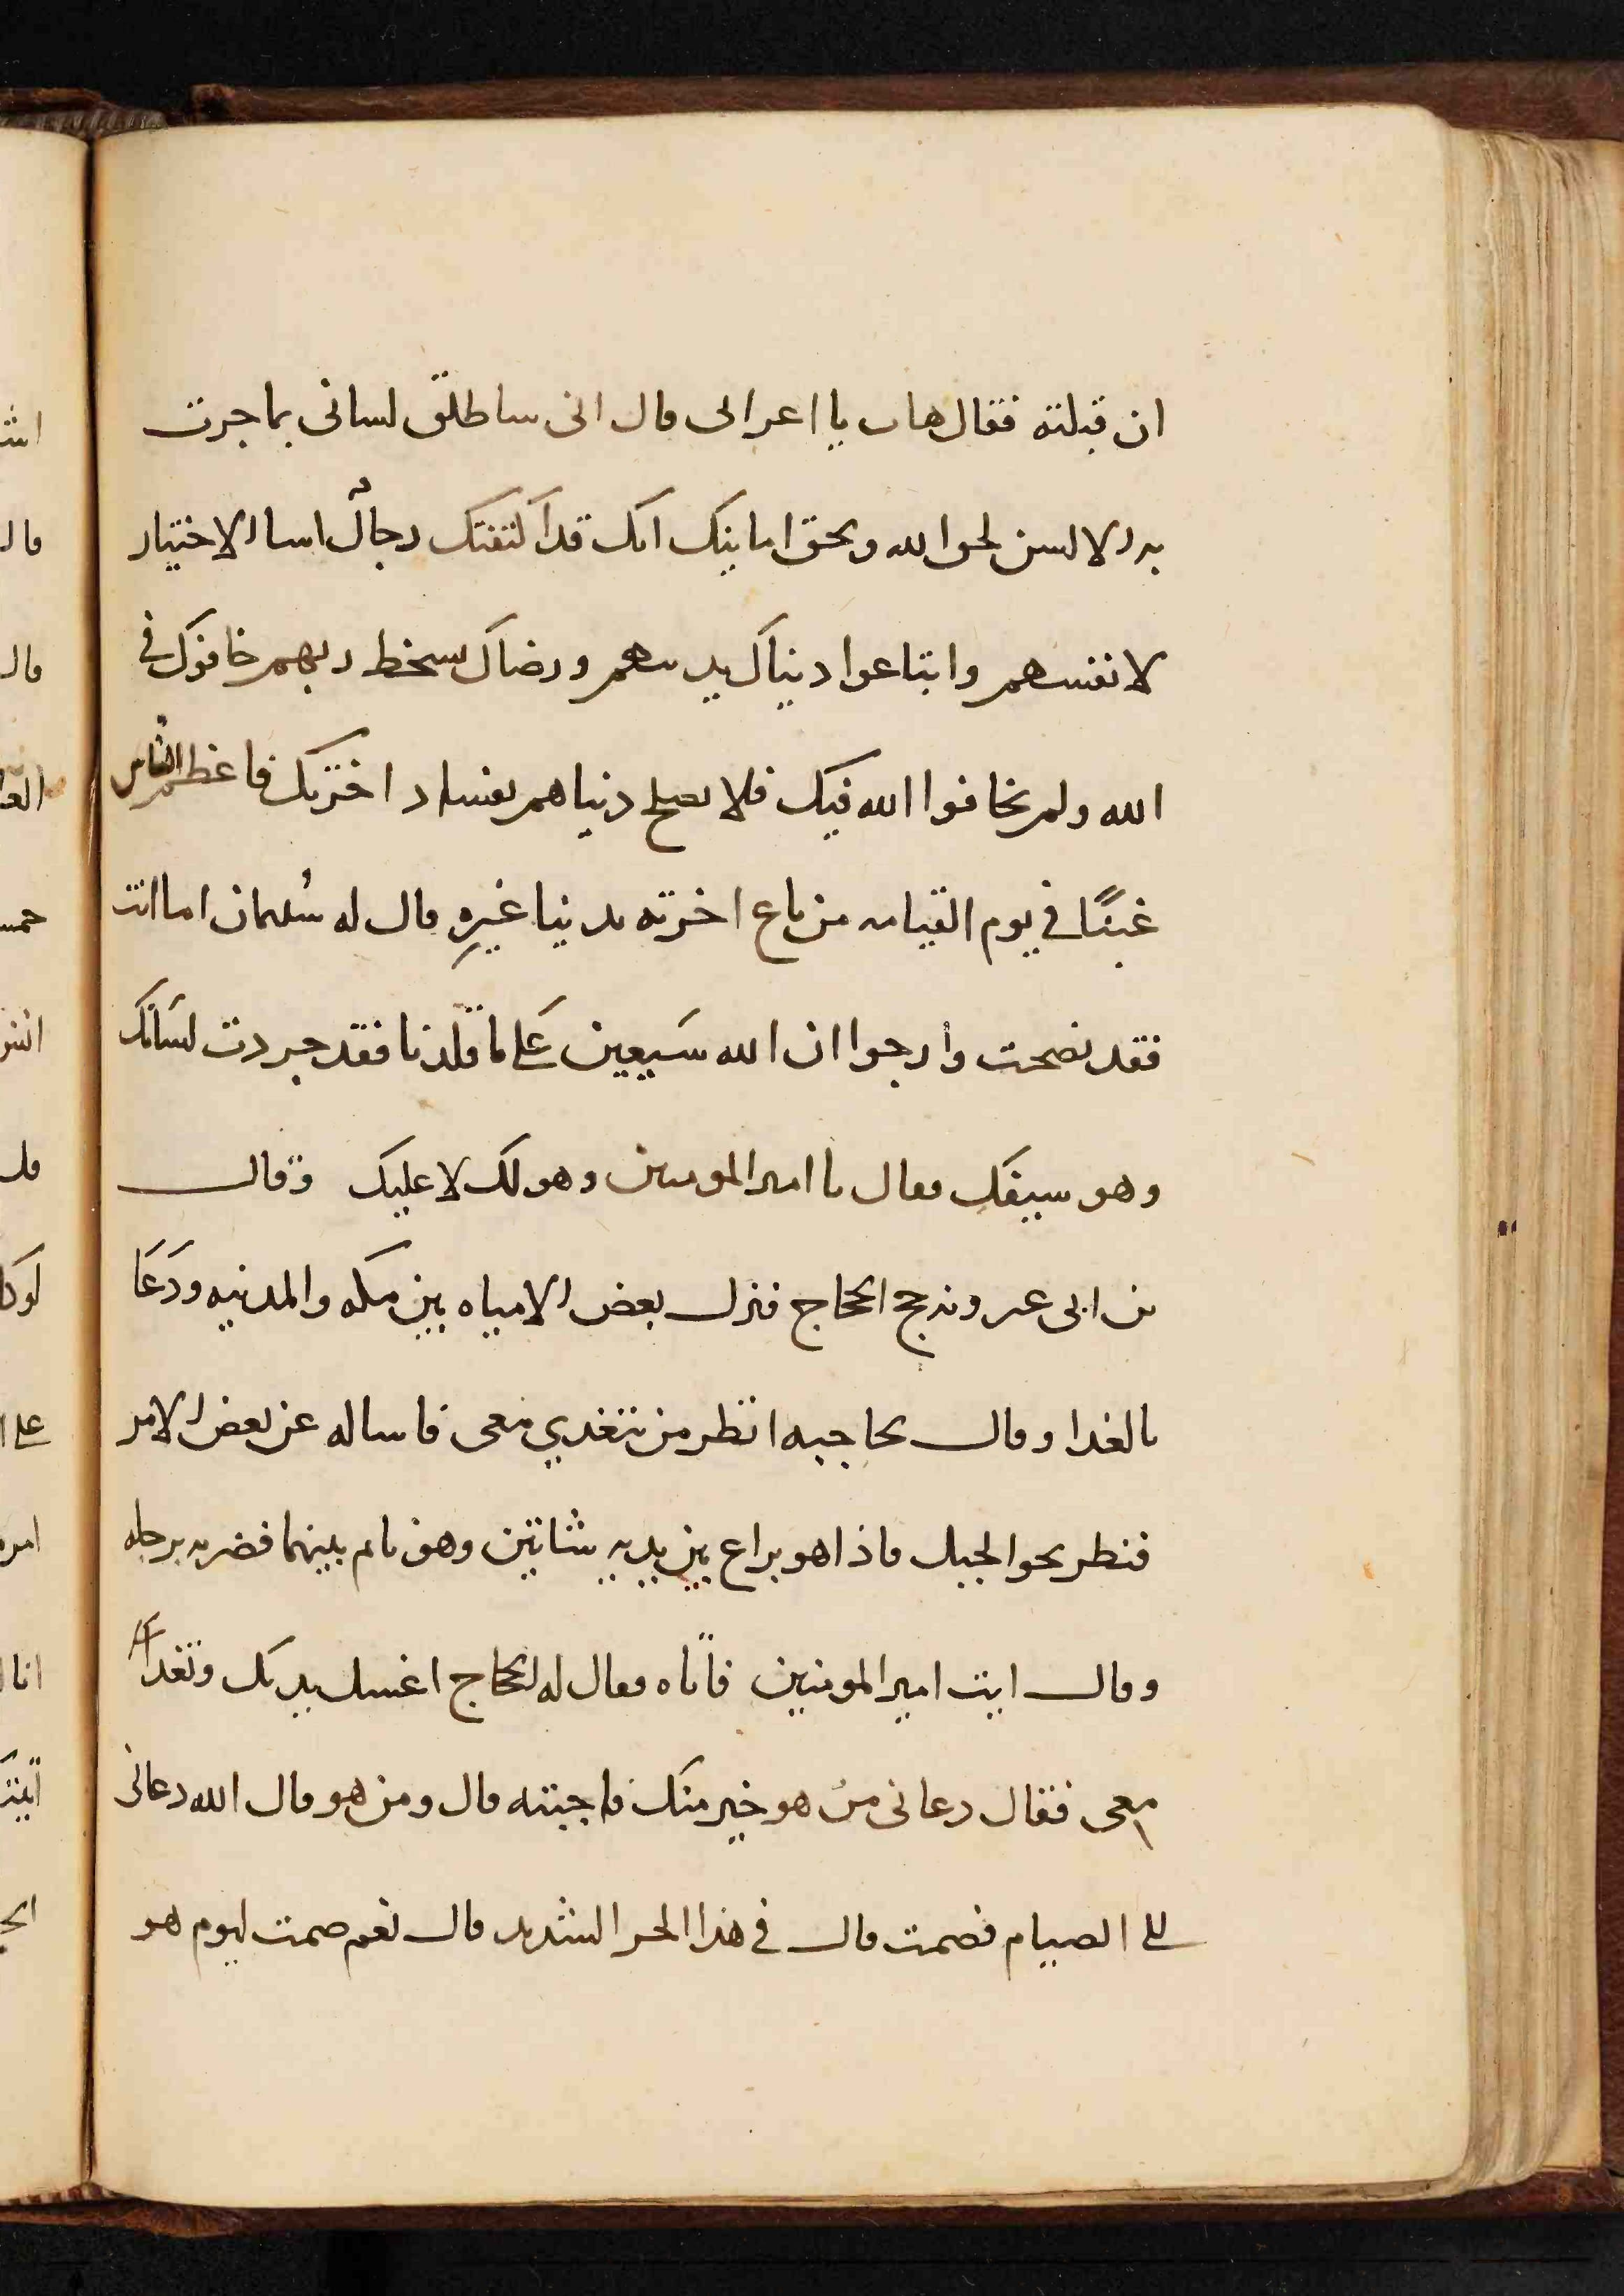 ان قبلته فقال هات يا اعرابى قال انى ساطلق لسانى بما جرت
به الالسن لحق الله وبحق امانتك انك قد اكتنفتك رجال اساؤا الاختيار
لانفسهم وابتاعوا دنياك بدينهم ورضاك بسخط ربهم خافوك فى
الله ولم يخافوا الله فيك فلا تصلح دنياهم بفساد اخرتك فاعظم الناس
غبنًا في يوم القيامه من باع اخرته بدنيا غيره قال له سُليمان اما انت
فقد نصحت وأرجوا ان الله سَيعين عَلى ما قلدنا فقد جردت لسَانك
وهو سيفك فقال يا امير المومنين وهو لك لا عليك وقال
بن ابى عروبه حج الحجاج فنزل بعض الامياه بين مكه والمدينه ودَعَا
بالغدا وقال لحاجبه انظر من يتغدي معى فاساله عن بعض الامر
فنظر نحو الجبل فاذا هو براع بين يديه شاتين وهو نايم بينهما فضربه برجله
وقال ايت امير المومنين فاتاه فقال له الحجاج اغسل يديك وتغدا
معى فقال دعانى من هو خير منك فاجبته قال ومن هو قال الله دعانى
الى الصيام فصمت قال فى هذا الحر الشديد قال نعم صمت ليوم هو